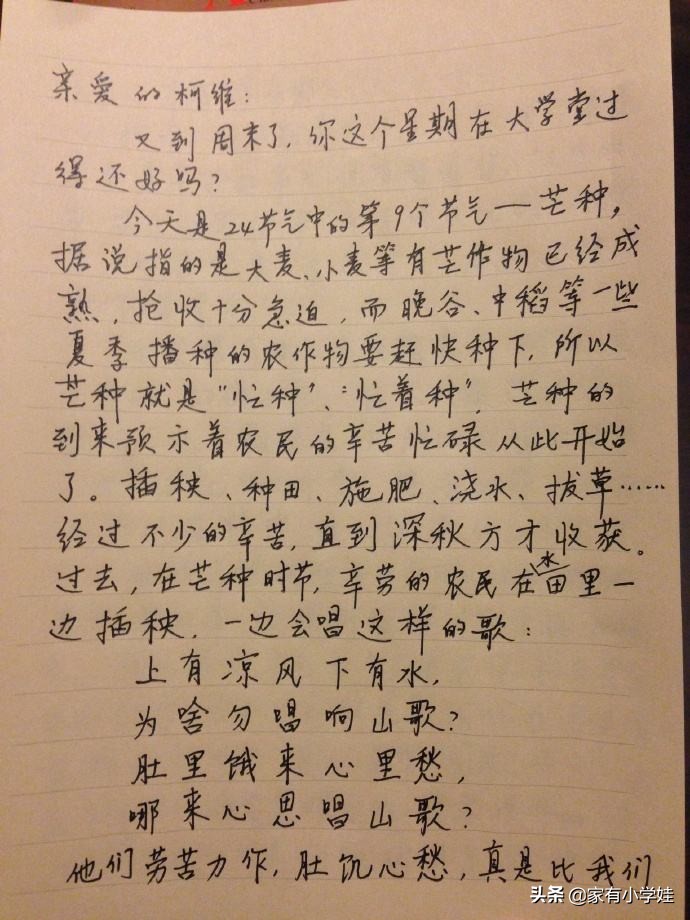 亲爱的柯维:
又到周末了,你这个星期在大学堂过
得还好吗?
今天是24节气中的第9个节气—芒种,
据说指的是大麦、小麦等有芒作物已经成
熟,抢收十分急迫,而晚谷、中稻等一些
夏季播种的农作物要赶快种下,所以
芒种就是“忙种”、“忙着种”,芒种的
到来预示着农民的辛苦忙碌从此开始
了。插秧、种田、施肥、浇水、拔草……
经过不少的辛苦,直到深秋方才收获。
过去,在芒种时节,辛劳的农民在水田里一
边插秧,一边会唱这样的歌:
上有凉风下有水,
为啥勿唱响山歌?
肚里饿来心里愁,
哪来心思唱山歌?
他们劳苦力作,肚饥心愁,真是比我们
头条 @家有小学娃